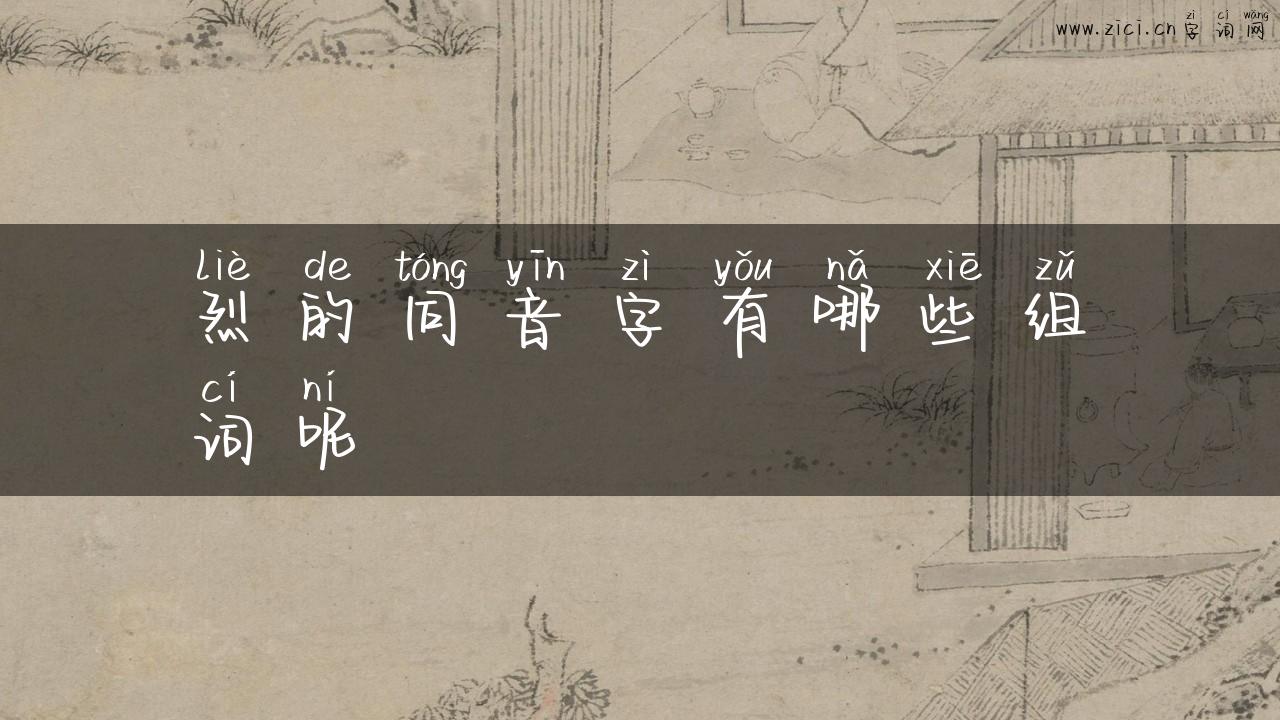 zì cí wǎng
www.zici.cn 字词网
liè de tóng yīn zì yǒu nǎ xiē zǔ
烈的同音字有哪些组
cí ní
词呢